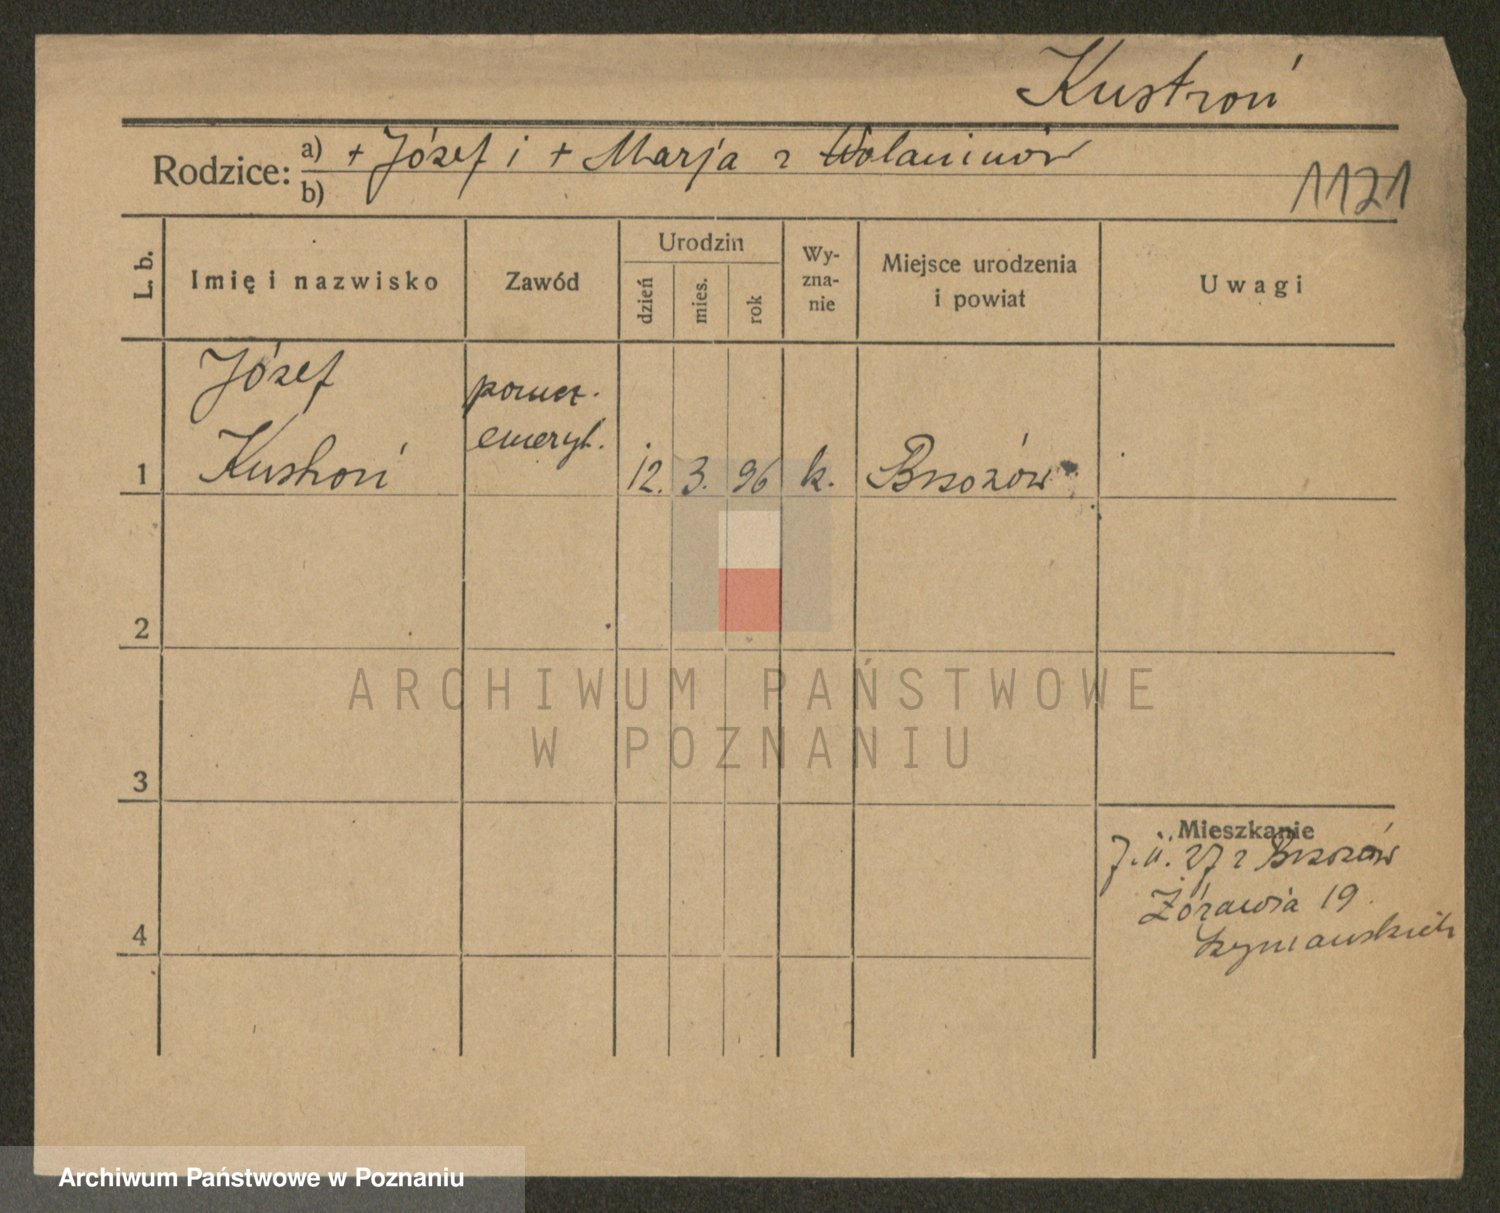 Kustroń
Rodzice: a) + Józef i + Marja z Wolaninów
b)
1121
L. b.
Imię i nazwisko
Zawód
Urodzin
dzień
mies.
rok
Wy-
zna-
nie
Miejsce urodzenia
i powiat
Uwagi
1
Józef
Kustroń
emeryt.
12. 3. 96 k. Brzozów
2
ARCHIWUM PAŃSTWOWE
W POZNANIU
3
Mieszkanie
7. 27 z Brzozów
Żórawia 19
4
Archiwum Państwowe w Poznaniu